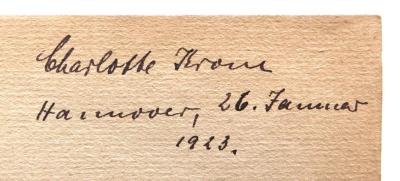 Charlotte Krom
Hannover, 26. Januar
1923.